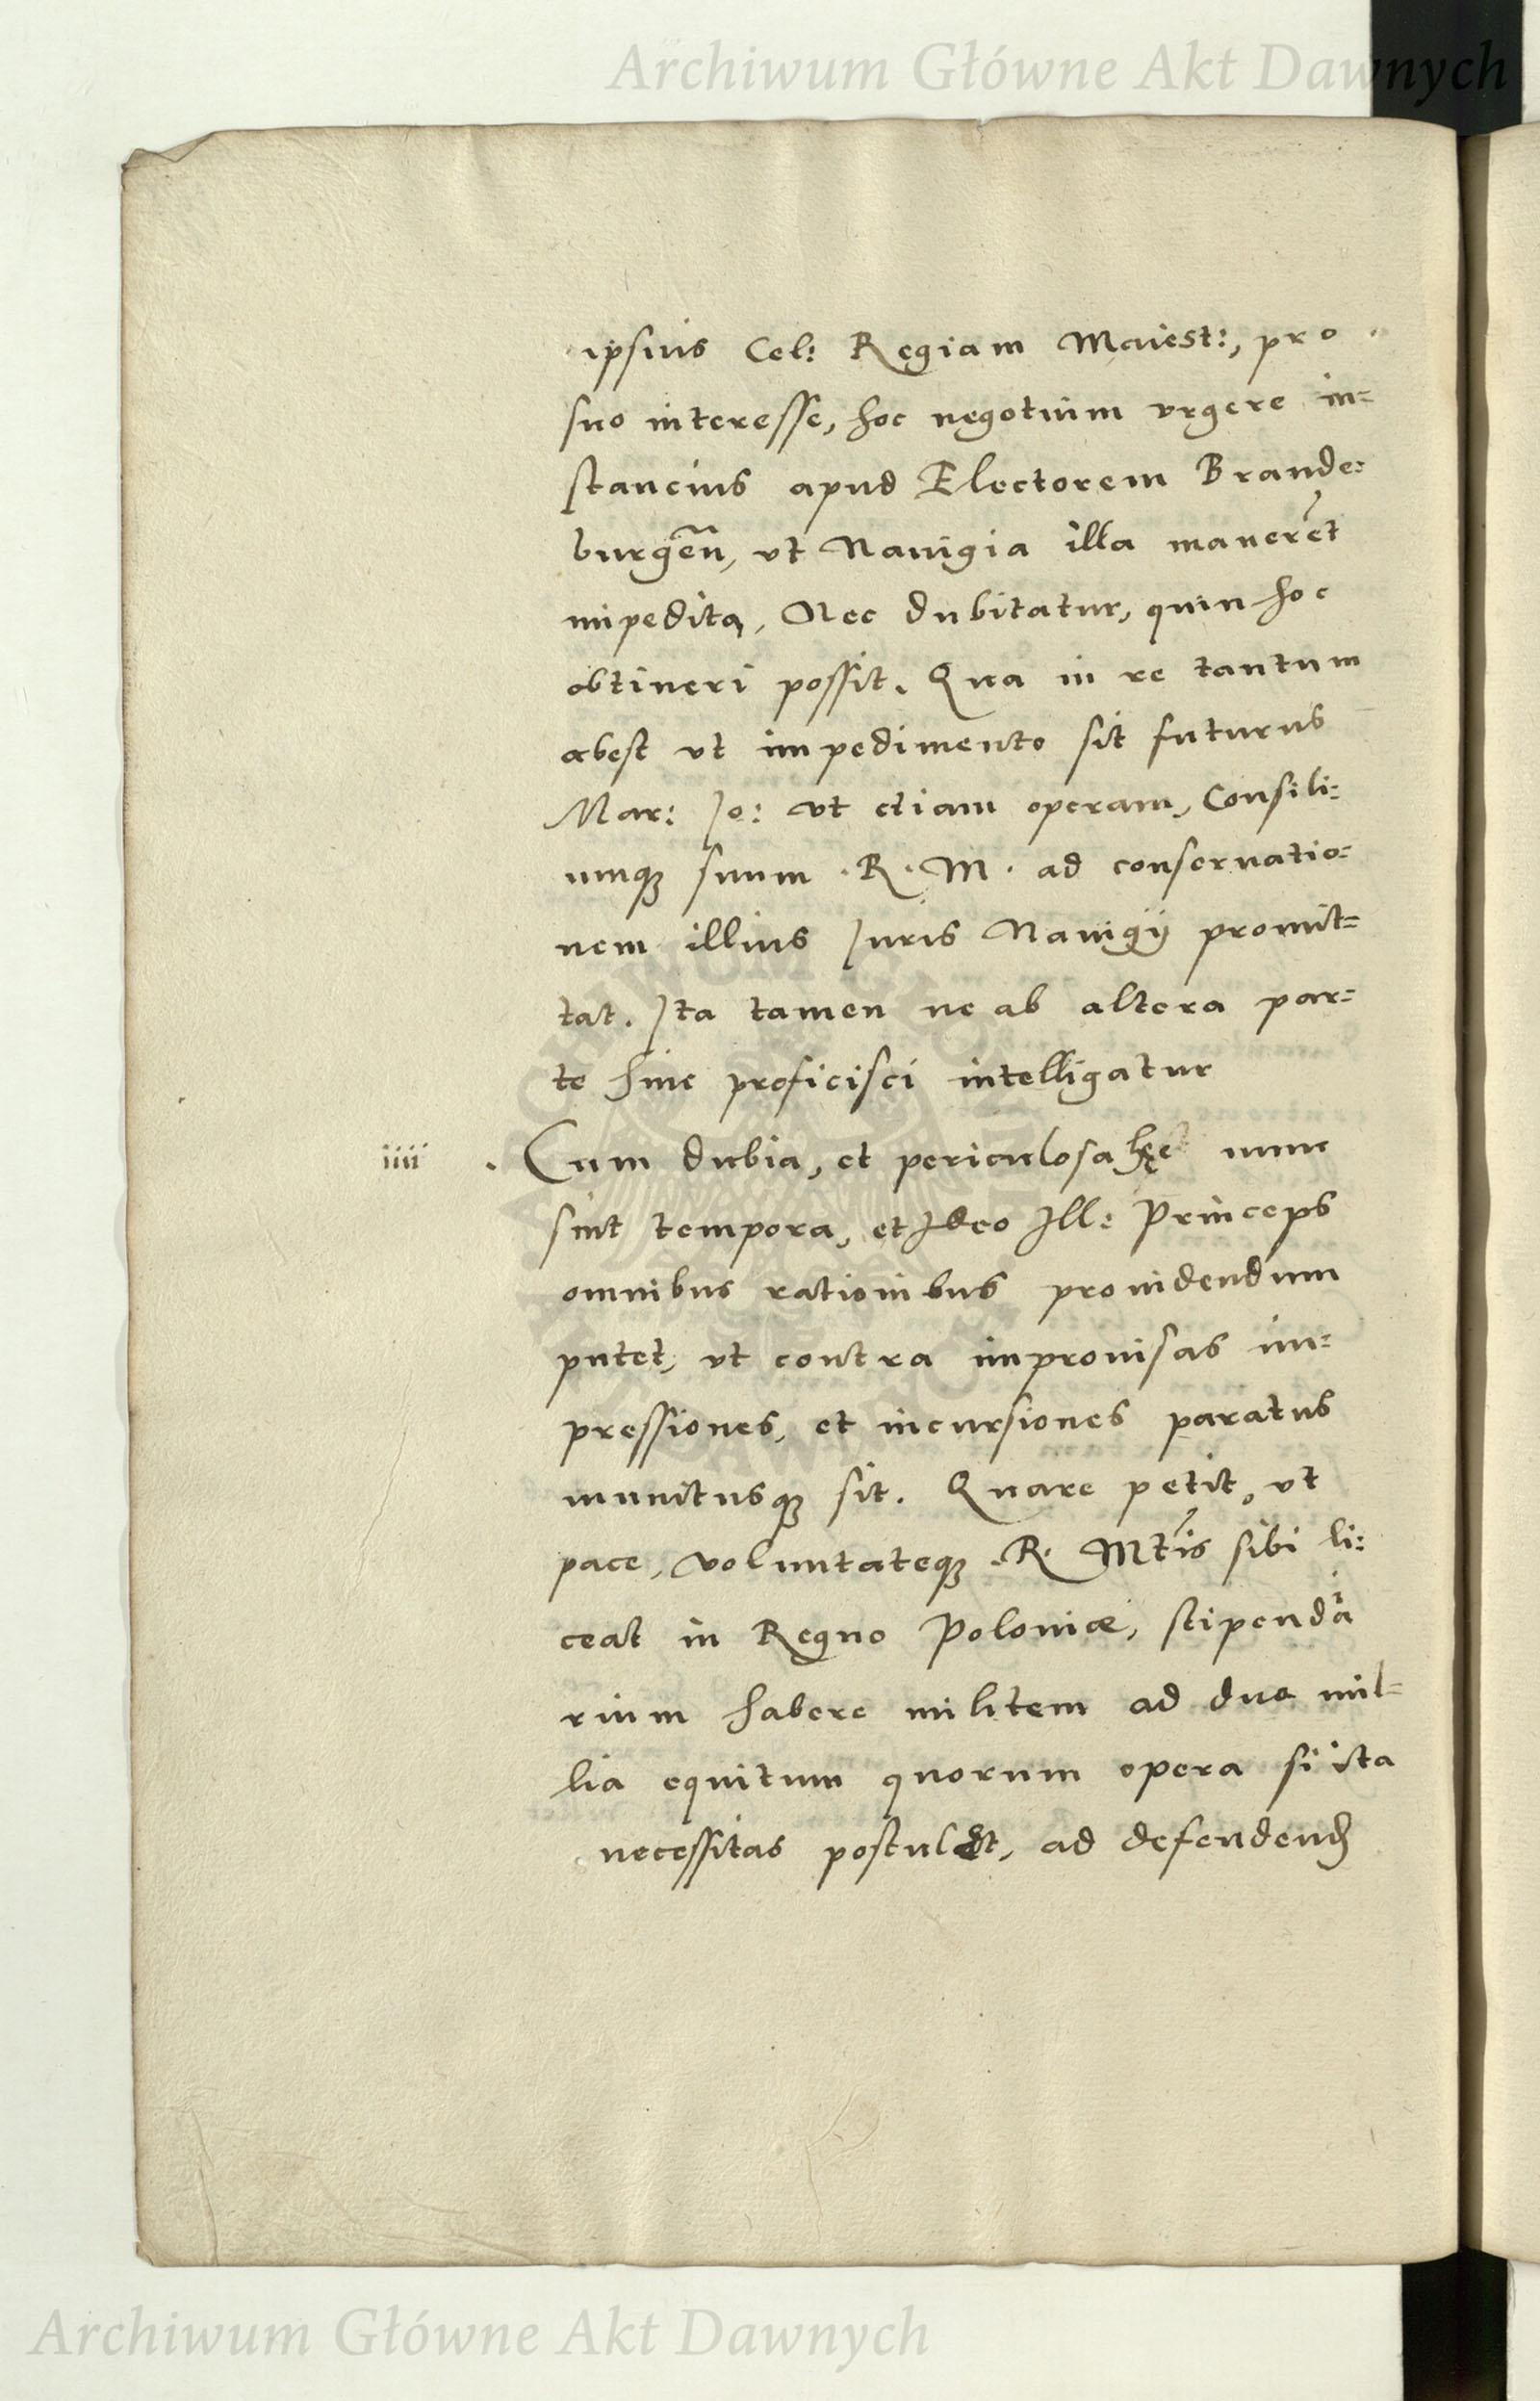 Archiwum Główne Akt Dawnych
ipsius Cel: Regiam Maiest:, pro
suo interesse, hoc negotium vrgere in=
stancius apud Electorem Brande:
burgeñ, vt Nauigia illa manerēt
impedita, Nec dubitatur, quin hoc
obtineri possit. Qua in re tantum
abest vt impedimento sit futurus
Mar: Jo: vt etiam operam, Consili:
umqꝫ suum .R.M. ad conseruatio=
nem illius Juris Nauigij promit=
tat. Ita tamen ne ab altera par=
te hinc proficisci intelligatur
iiii . Cum dubia, et periculosa hęc nunc
sint tempora, et Ideo Ill: Princeps
omnibus rationibus prouidendum
putet, vt contra improuisas im=
pressiones, et incursiones paratus
munitusqꝫ sit. Quare petit, vt
pace, voluntateqꝫ .R. Mtis sibi li:
ceat in Regno Poloniæ, stipendia
rium habere militem ad duo mil=
lia equitum quorum opera si ita
necessitas postulet, ad defendend
Archiwum Główne Akt Dawnych